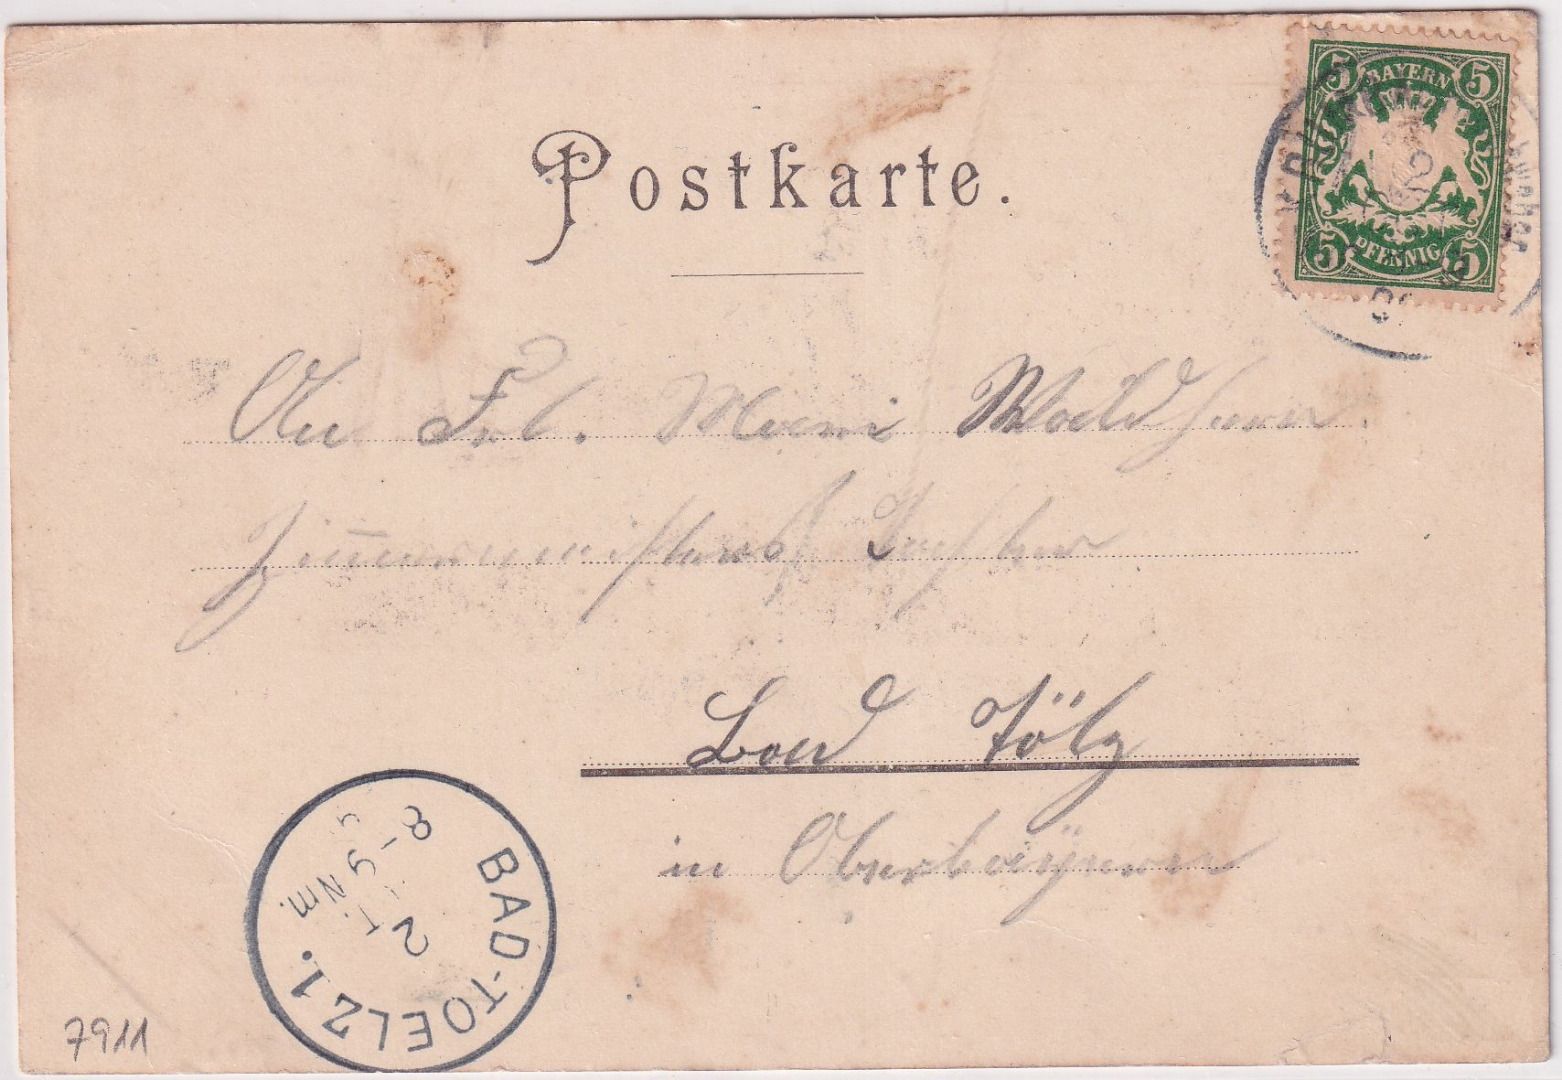 Postkarte.
5 BAYERN 5
5 PFENNIG 5
An Frl. Mari Waldherr.
Zimmermeisters Tochter
Bad Tölz
in Oberbayern
BAD-TOELZ 1.
2
8-9 Nm.
7911